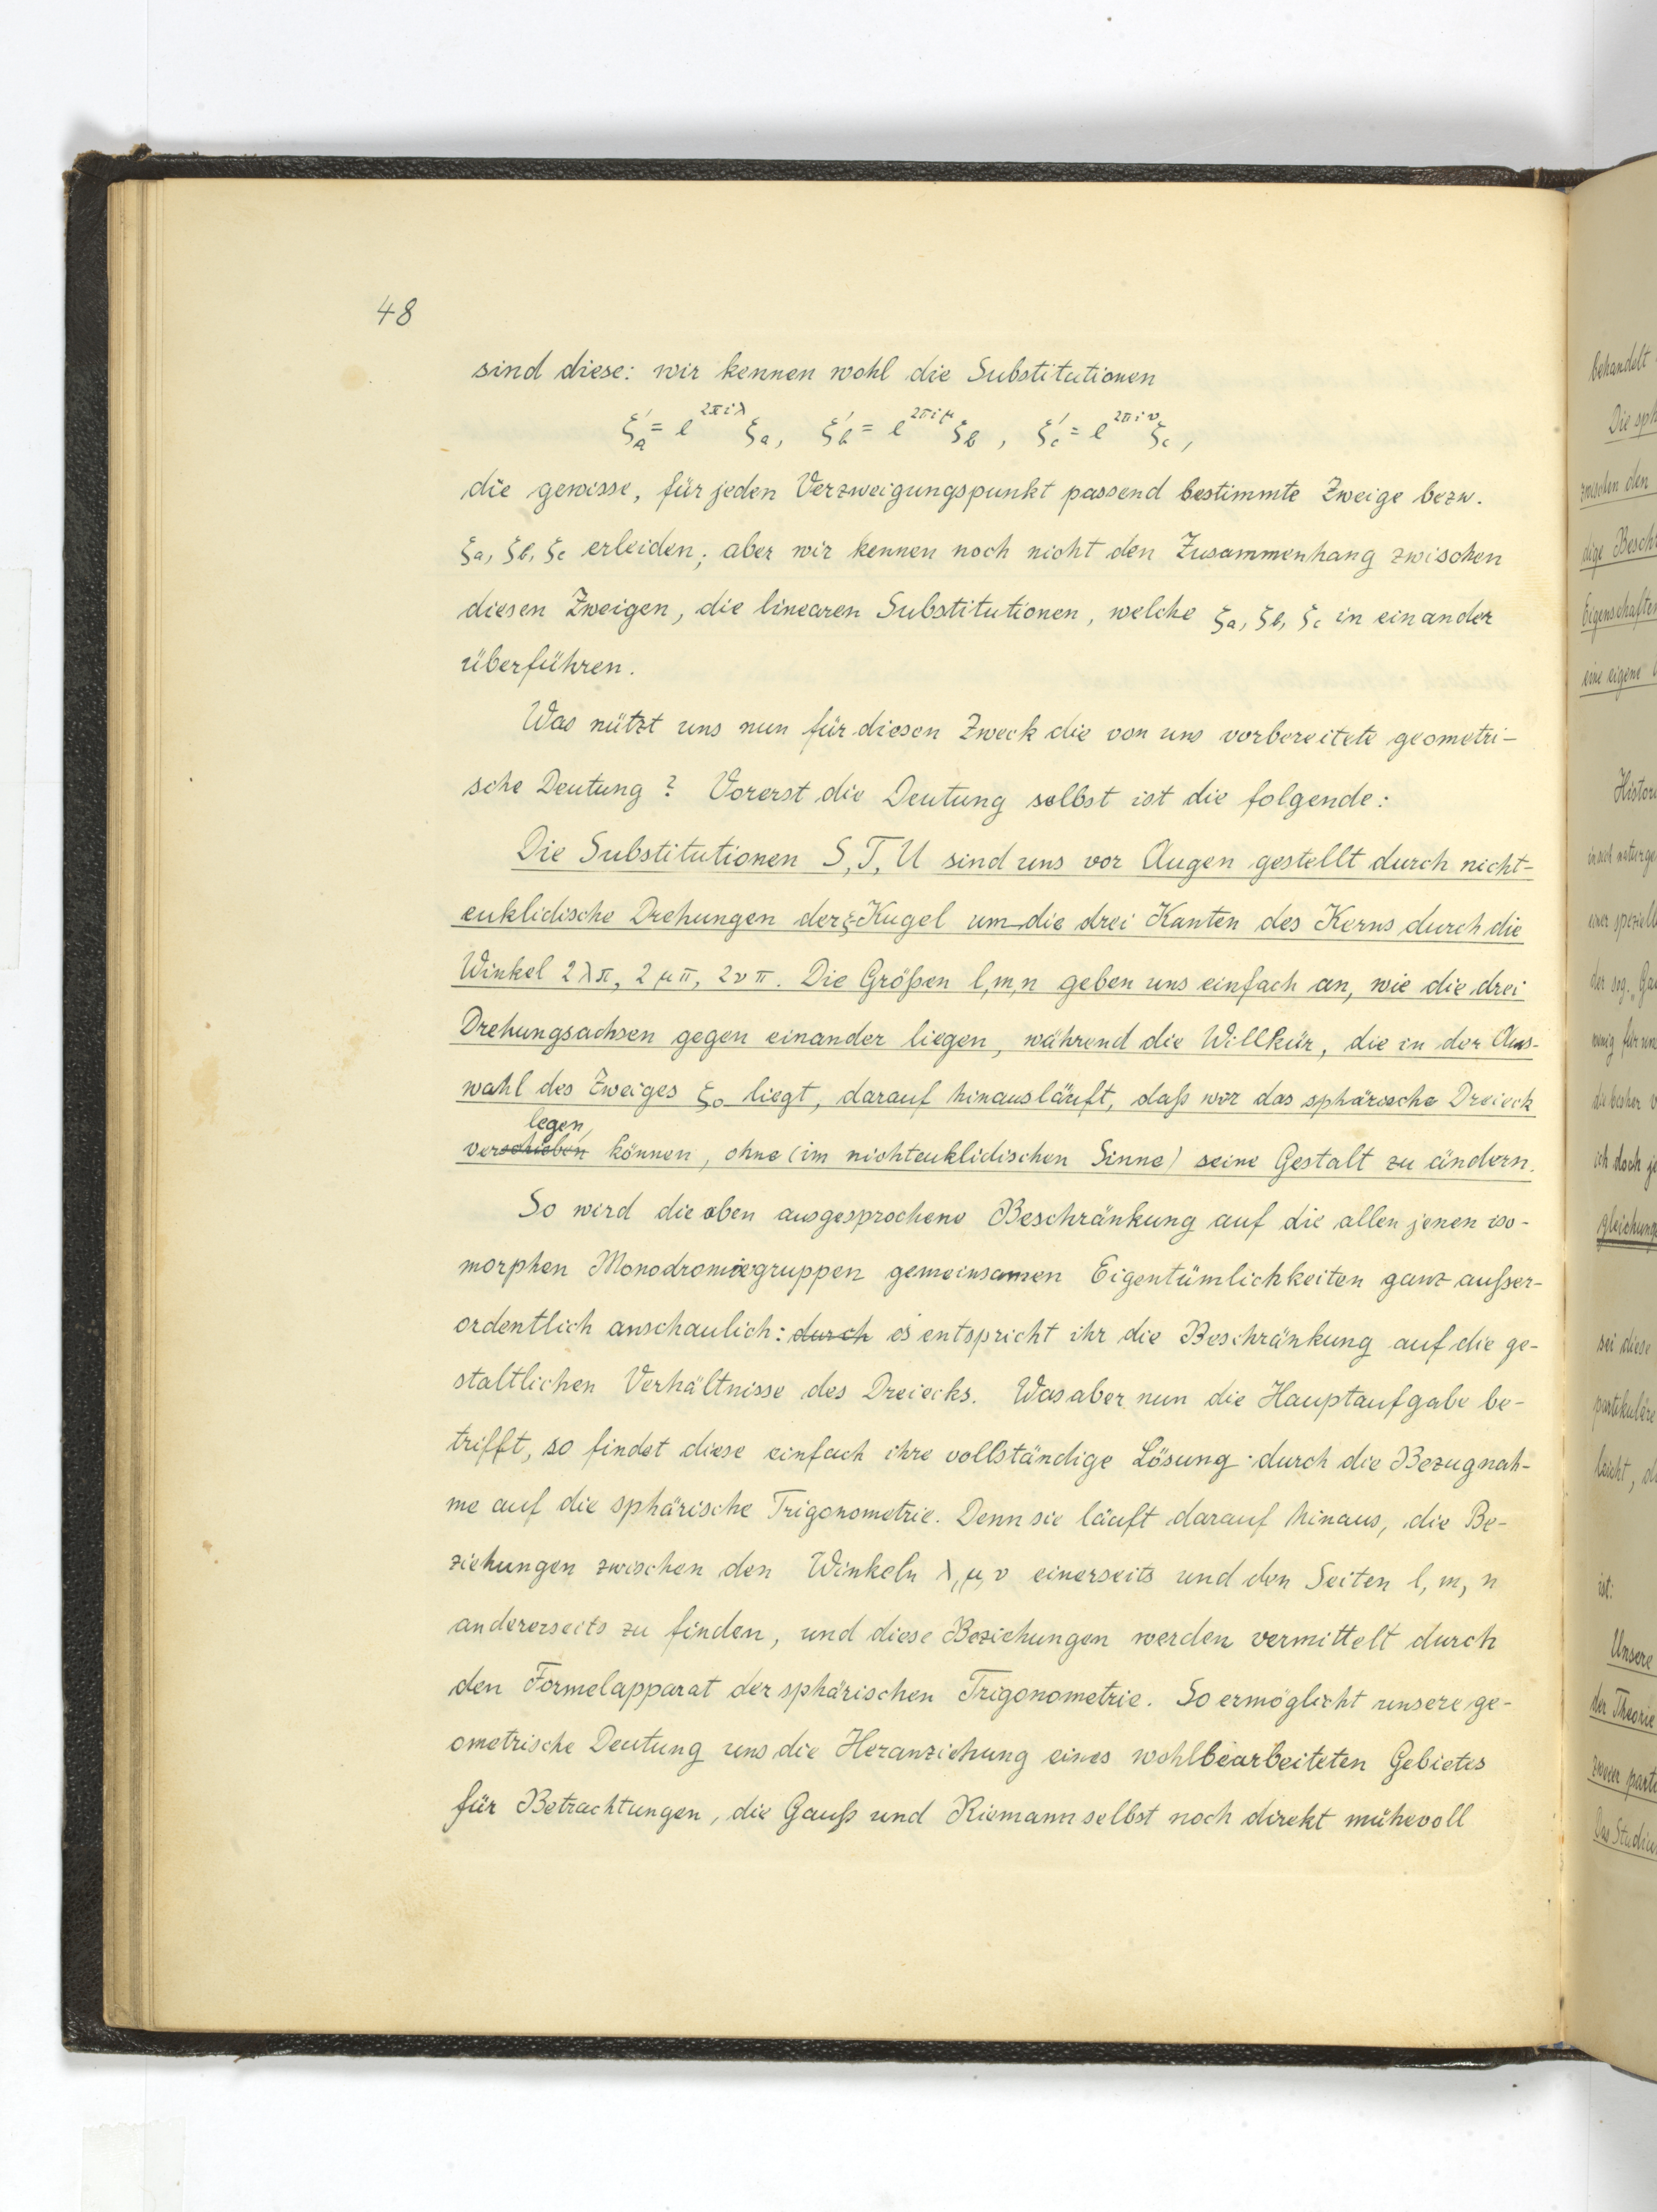 48
sind diese: wir kennen wohl die Substitutionen
ζ'a = e^{2πiλ} ζa, ζ'b = e^{2πiμ} ζb, ζ'c = e^{2πiν} ζc,
die gewisse, für jeden Verzweigungspunkt passend bestimmte Zweige bezw.
ζa, ζb, ζc erleiden; aber wir kennen noch nicht den Zusammenhang zwischen
diesen Zweigen, die linearen Substitutionen, welche ζa, ζb, ζc in einander
überführen.
Was nützt uns nun für diesen Zweck die von uns vorbereitete geometri-
sche Deutung? Vorerst die Deutung selbst ist die folgende:
Die Substitutionen S, T, U sind uns vor Augen gestellt durch nicht-
euklidische Drehungen der ζ-Kugel um die drei Kanten des Kerns durch die
Winkel 2λπ, 2μπ, 2νπ. Die Größen l, m, n geben uns einfach an, wie die drei
Drehungsachsen gegen einander liegen, während die Willkür, die in der Aus-
wahl des Zweiges ζ₀ liegt, darauf hinausläuft, daß wir das sphärische Dreieck
legen,
verschieben können, ohne (im nichteuklidischen Sinne) seine Gestalt zu ändern.
So wird die oben ausgesprochene Beschränkung auf die allen jenen iso-
morphen Monodromiegruppen gemeinsamen Eigentümlichkeiten ganz außer-
ordentlich anschaulich: durch es entspricht ihr die Beschränkung auf die ge-
staltlichen Verhältnisse des Dreiecks. Was aber nun die Hauptaufgabe be-
trifft, so findet diese einfach ihre vollständige Lösung durch die Bezugnah-
me auf die sphärische Trigonometrie. Denn sie läuft darauf hinaus, die Be-
ziehungen zwischen den Winkeln λ, μ, ν einerseits und den Seiten l, m, n
andererseits zu finden, und diese Beziehungen werden vermittelt durch
den Formelapparat der sphärischen Trigonometrie. So ermöglicht unsere ge-
ometrische Deutung uns die Heranziehung eines wohlbearbeiteten Gebietes
für Betrachtungen, die Gauß und Riemann selbst noch direkt mühevoll
behandelt
Die sph
zwischen den
dige Besch
Eigenschaften
eine eigene
Histor
einer speziell
der sog. „Ga
wenig für un
die bisher v
ich doch je
gleichung
sei diese
partikuläre
leicht, d
ist:
Unsere
der Theorie
zweier parti
Das Studiu